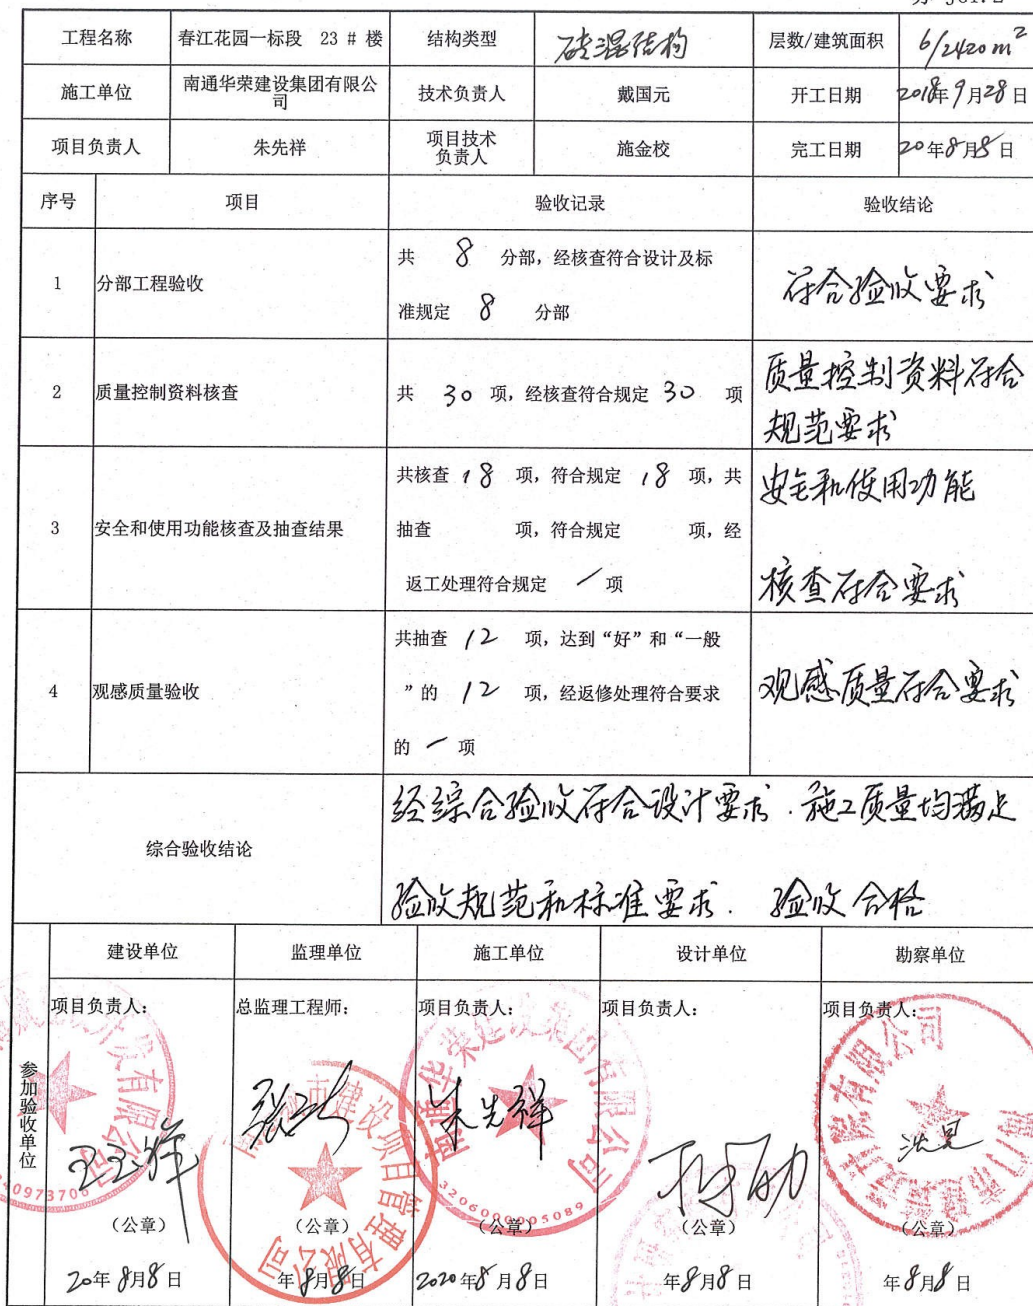 工程名称 春江花园一标段 23 # 楼 结构类型 砖混结构 层数/建筑面积 6/2420m²
施工单位 南通华荣建设集团有限公司 技术负责人 戴国元 开工日期 2018年9月28日
项目负责人 朱先祥 项目技术负责人 施金校 完工日期 20年8月8日
序号 项目 验收记录 验收结论
1 分部工程验收 共 8 分部，经核查符合设计及标
准规定 8 分部 符合验收要求
2 质量控制资料核查 共 30 项，经核查符合规定 30 项 质量控制资料符合
规范要求
3 安全和使用功能核查及抽查结果 共核查 18 项，符合规定 18 项，共
抽查 项，符合规定 项，经
返工处理符合规定 / 项
安全和使用功能
核查符合要求
4 观感质量验收 共抽查 12 项，达到“好”和“一般
”的 12 项，经返修处理符合要求
的 / 项
观感质量符合要求
综合验收结论 经综合验收符合设计要求．施工质量均满足
验收规范和标准要求． 验收合格
参加验收单位
建设单位 监理单位 施工单位 设计单位 勘察单位
项目负责人： 总监理工程师： 项目负责人： 项目负责人： 项目负责人：
朱先祥
南通华荣建设集团有限公司
3206000005089
（公章） （公章） （公章） （公章） （公章）
20年8月8日 年8月8日 2020年8月8日 年8月8日 年8月8日